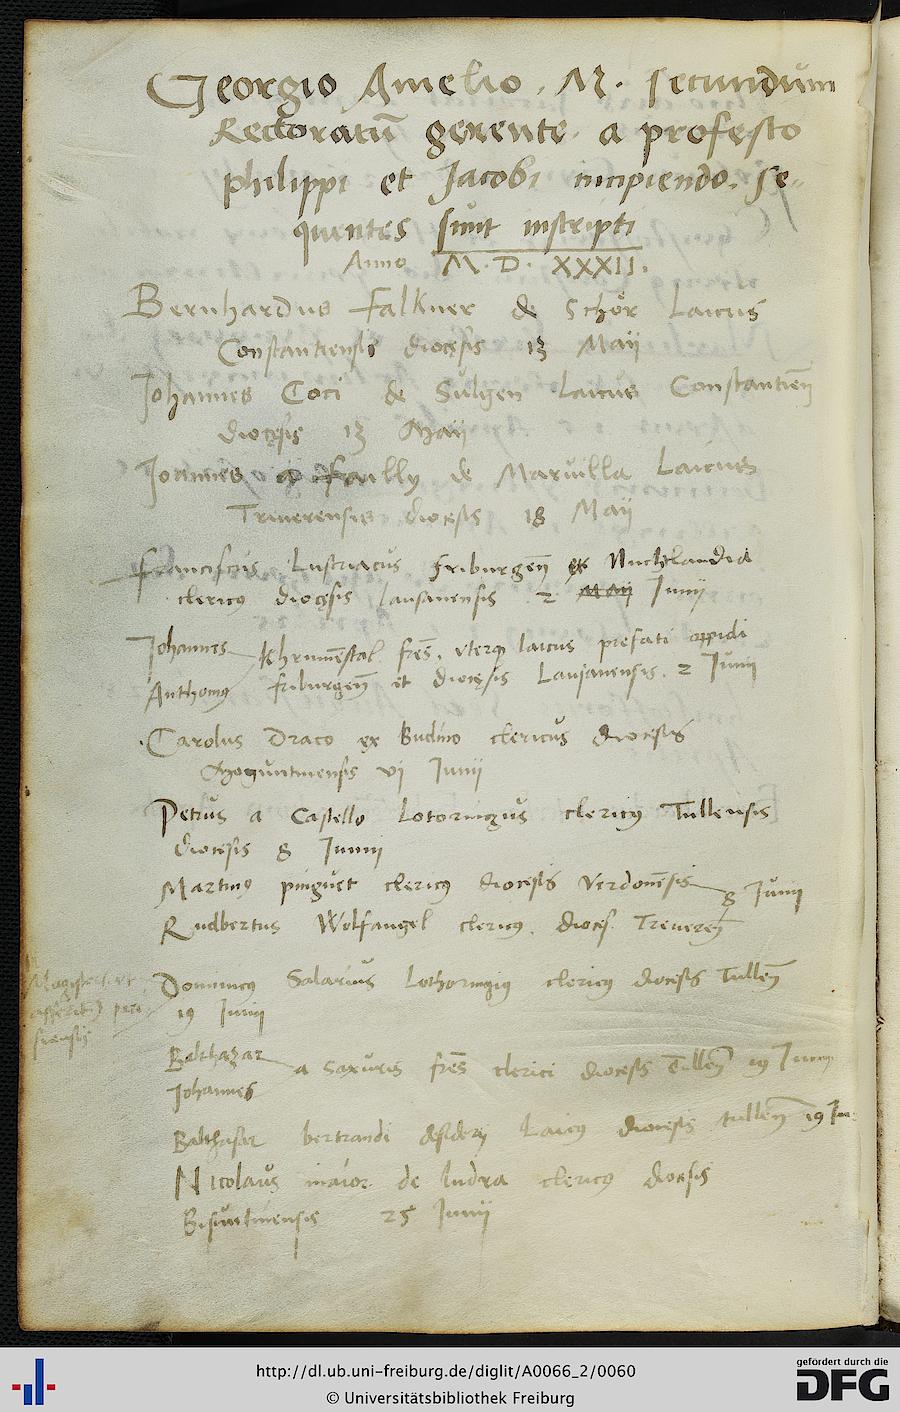 Georgio Amelio. M. secundum
Rectoratū gerente a profesto
philippi et Jacobi incipiendo. se-
quentes sunt inscripti
Anno M. D. XXXII.
Bernhardus Falkner de Schör Laicus
Constantiensis diocęsis 13 Maij
Johannes Coci de Sulgen Laicus Constantień
diocęsis 13 Maij
Joannes a failly de Marvilla Laicus
Treverensis diocesis 18 Maij
Franciscus Lustriacus friburgeñ ex Nuchtlandia
clericus diocęsis Lausanensis 2 Maij Junij
Johannes
Anthonius
fres, uterq laicus prefati oppidi
friburgeñ et diocęsis Lausanensis. 2 Junij
Carolus Draco ex clericus diocesis
Moguntinensis vj Junij
Petrus a Castello Lotoringus clericus Tullensis
diocesis 8 Junij
Martinus pinguet clericus diocesis Verdoneñsis
8 Junij
Rudbertus Wolfangel clericus. dioces. Trevereñ
Magister ut
asserit
Dominicus Salarius Lothoringius clericus diocesis Tulleñ
19 Junij
Balthazar
Johannes
a Saxuris fres clerici diocesis Tulleñ 19 Junij
Balthasar bertrandi desiderij Laicus diocesis tulleñ 19 Jun
Nicolaus maior de ludra clericus diocesis
Bisuntinensis 25 Junij
http://dl.ub.uni-freiburg.de/diglit/A0066_2/0060
© Universitätsbibliothek Freiburg
gefördert durch die
DFG